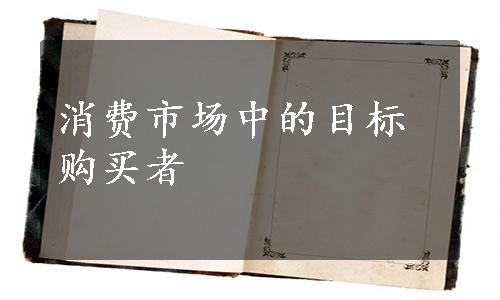 消费市场中的目标
购买者